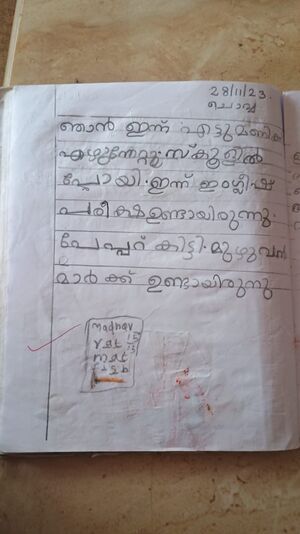 28/11/23.
ചൊവ്വ
ഞാൻ ഇന്ന് എട്ടുമണിക്ക്
എഴുന്നേറ്റു. സ്കൂളിൽ
പോയി. ഇന്ന് ഇംഗ്ലീഷ്
പരീക്ഷ ഉണ്ടായിരുന്നു.
പേപ്പർ കിട്ടി. മുഴുവൻ
മാർക്ക് ഉണ്ടായിരുന്നു
madhav
rat
mat